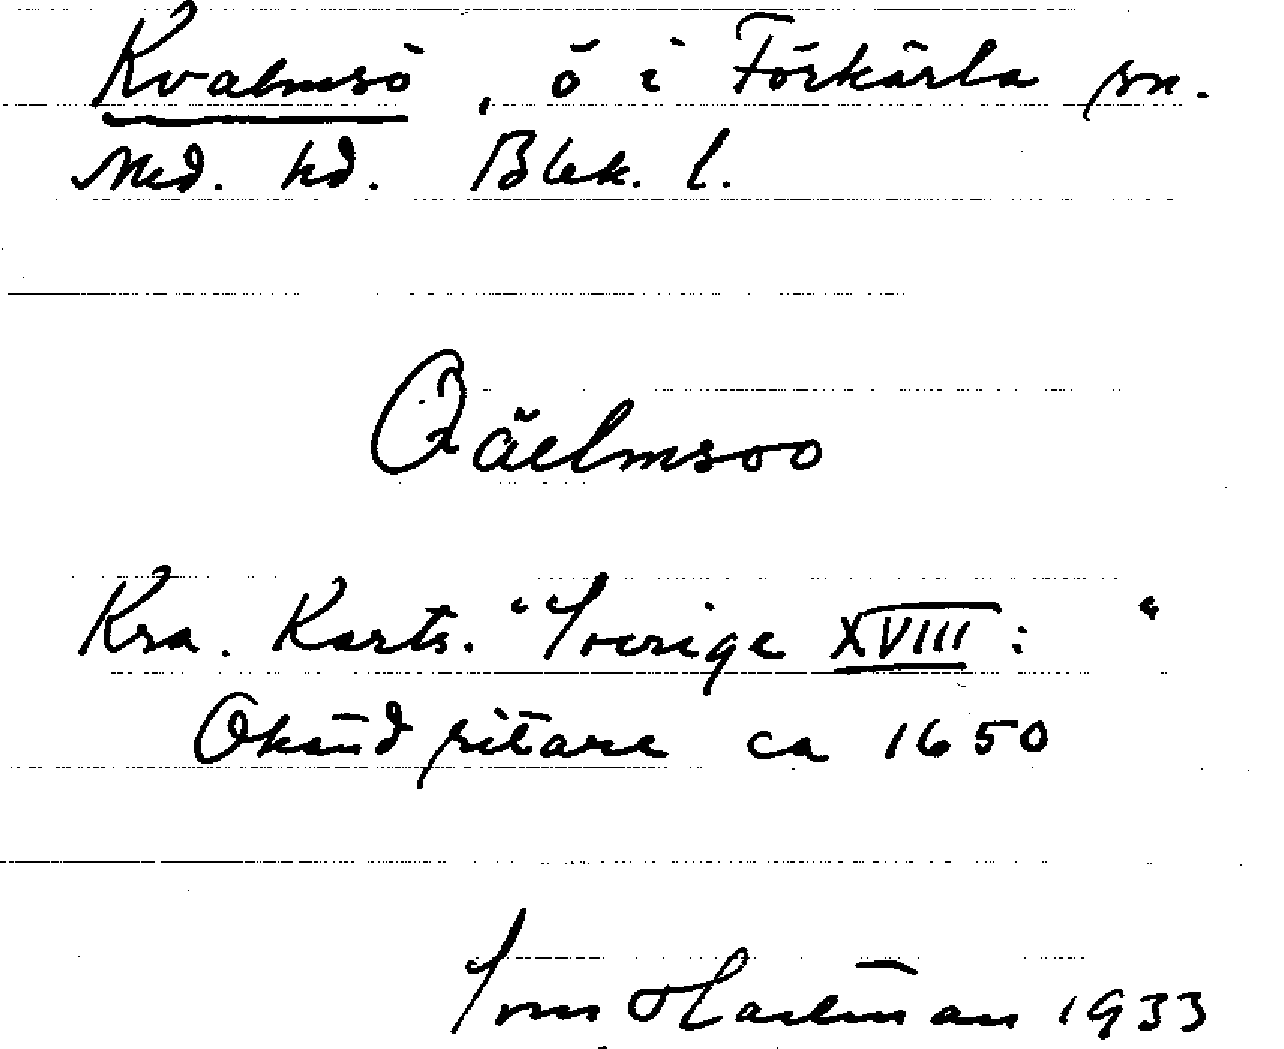 Kvalmsö, ö i Förkärla sn.
Med. hd. Blek. l.
Qäelmsoo
Kra. Karts. "Sverige XVIII: "
Okänd ritare ca 1650
Hartman 1933